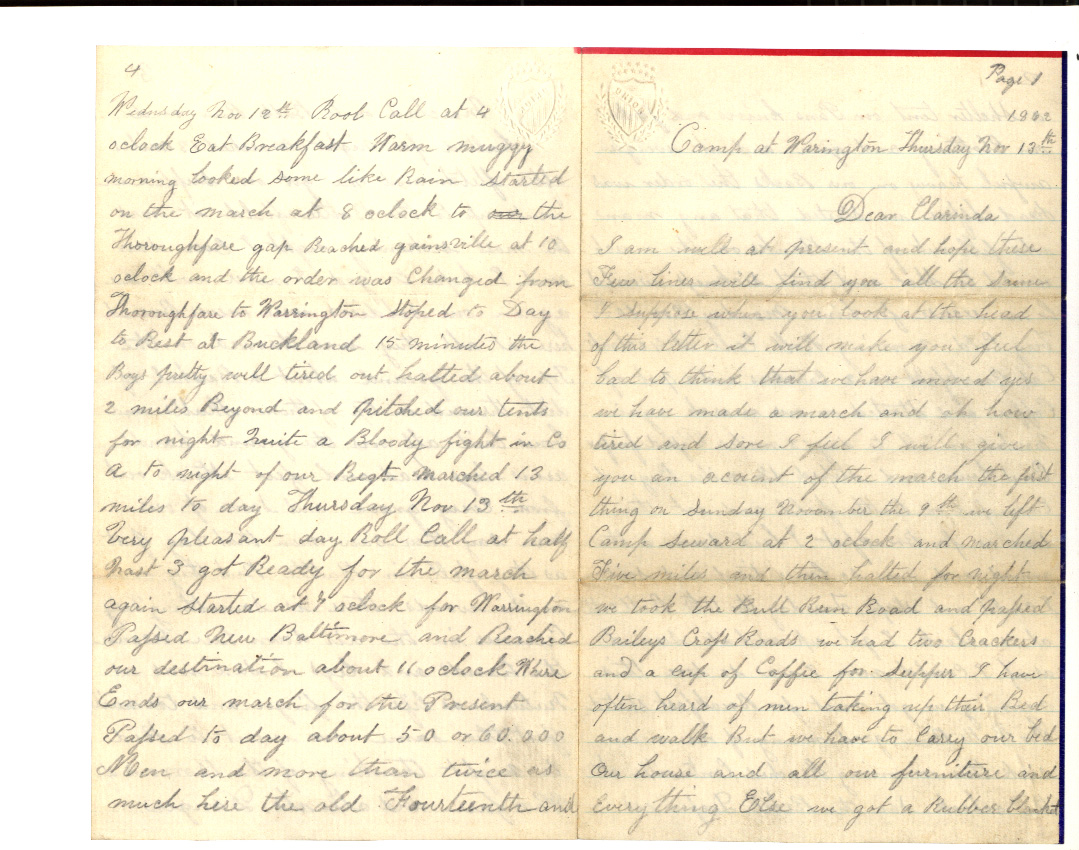 4
Wednesday Nov 12th Rool Call at 4
oclock Eat Breakfast Warm muggy
morning looked some like Rain started
on the march at 8 oclock to the
Thoroughfare gap Reached gainsville at 10
oclock and the order was Changed from
Thoroughfare to Warrington Stoped to Day
to Rest at Buckland 15 minutes the
Boys pretty well tired out halted about
2 miles Beyond and pitched our tents
for night Quite a Bloody fight in Co
A to night of our Regt marched 13
miles to day Thursday Nov 13th
Very pleasant day Roll Call at half
Past 3 got Ready for the march
again started at 7 oclock for Warrington
Passed New Baltimore and Reached
our destination about 11 oclock Where
Ends our march for the Present
Passed to day about 50 or 60.000
Men and more than twice as
much here the old Fourteenth and
Page 1
UNION
1862
Camp at Warington Thursday Nov 13th
Dear Clarinda
I am well at present and hope these
Few lines will find you all the same
I suppose when you look at the head
of this letter it will make you feel
bad to think that we have moved yes
we have made a march and oh how
tired and sore I feel I will give
you an acount of the march the first
thing on Sunday November the 9th we left
Camp Seward at 2 oclock and marched
Five miles and then halted for night
we took the Bull Run Road and passed
Baileys Cross Roads we had two Crackers
and a cup of Coffee for Supper I have
often heard of men taking up their Bed
and walk But we have to Carry our bed
Our house and all our furniture and
Everything Else we got a Rubber blanket